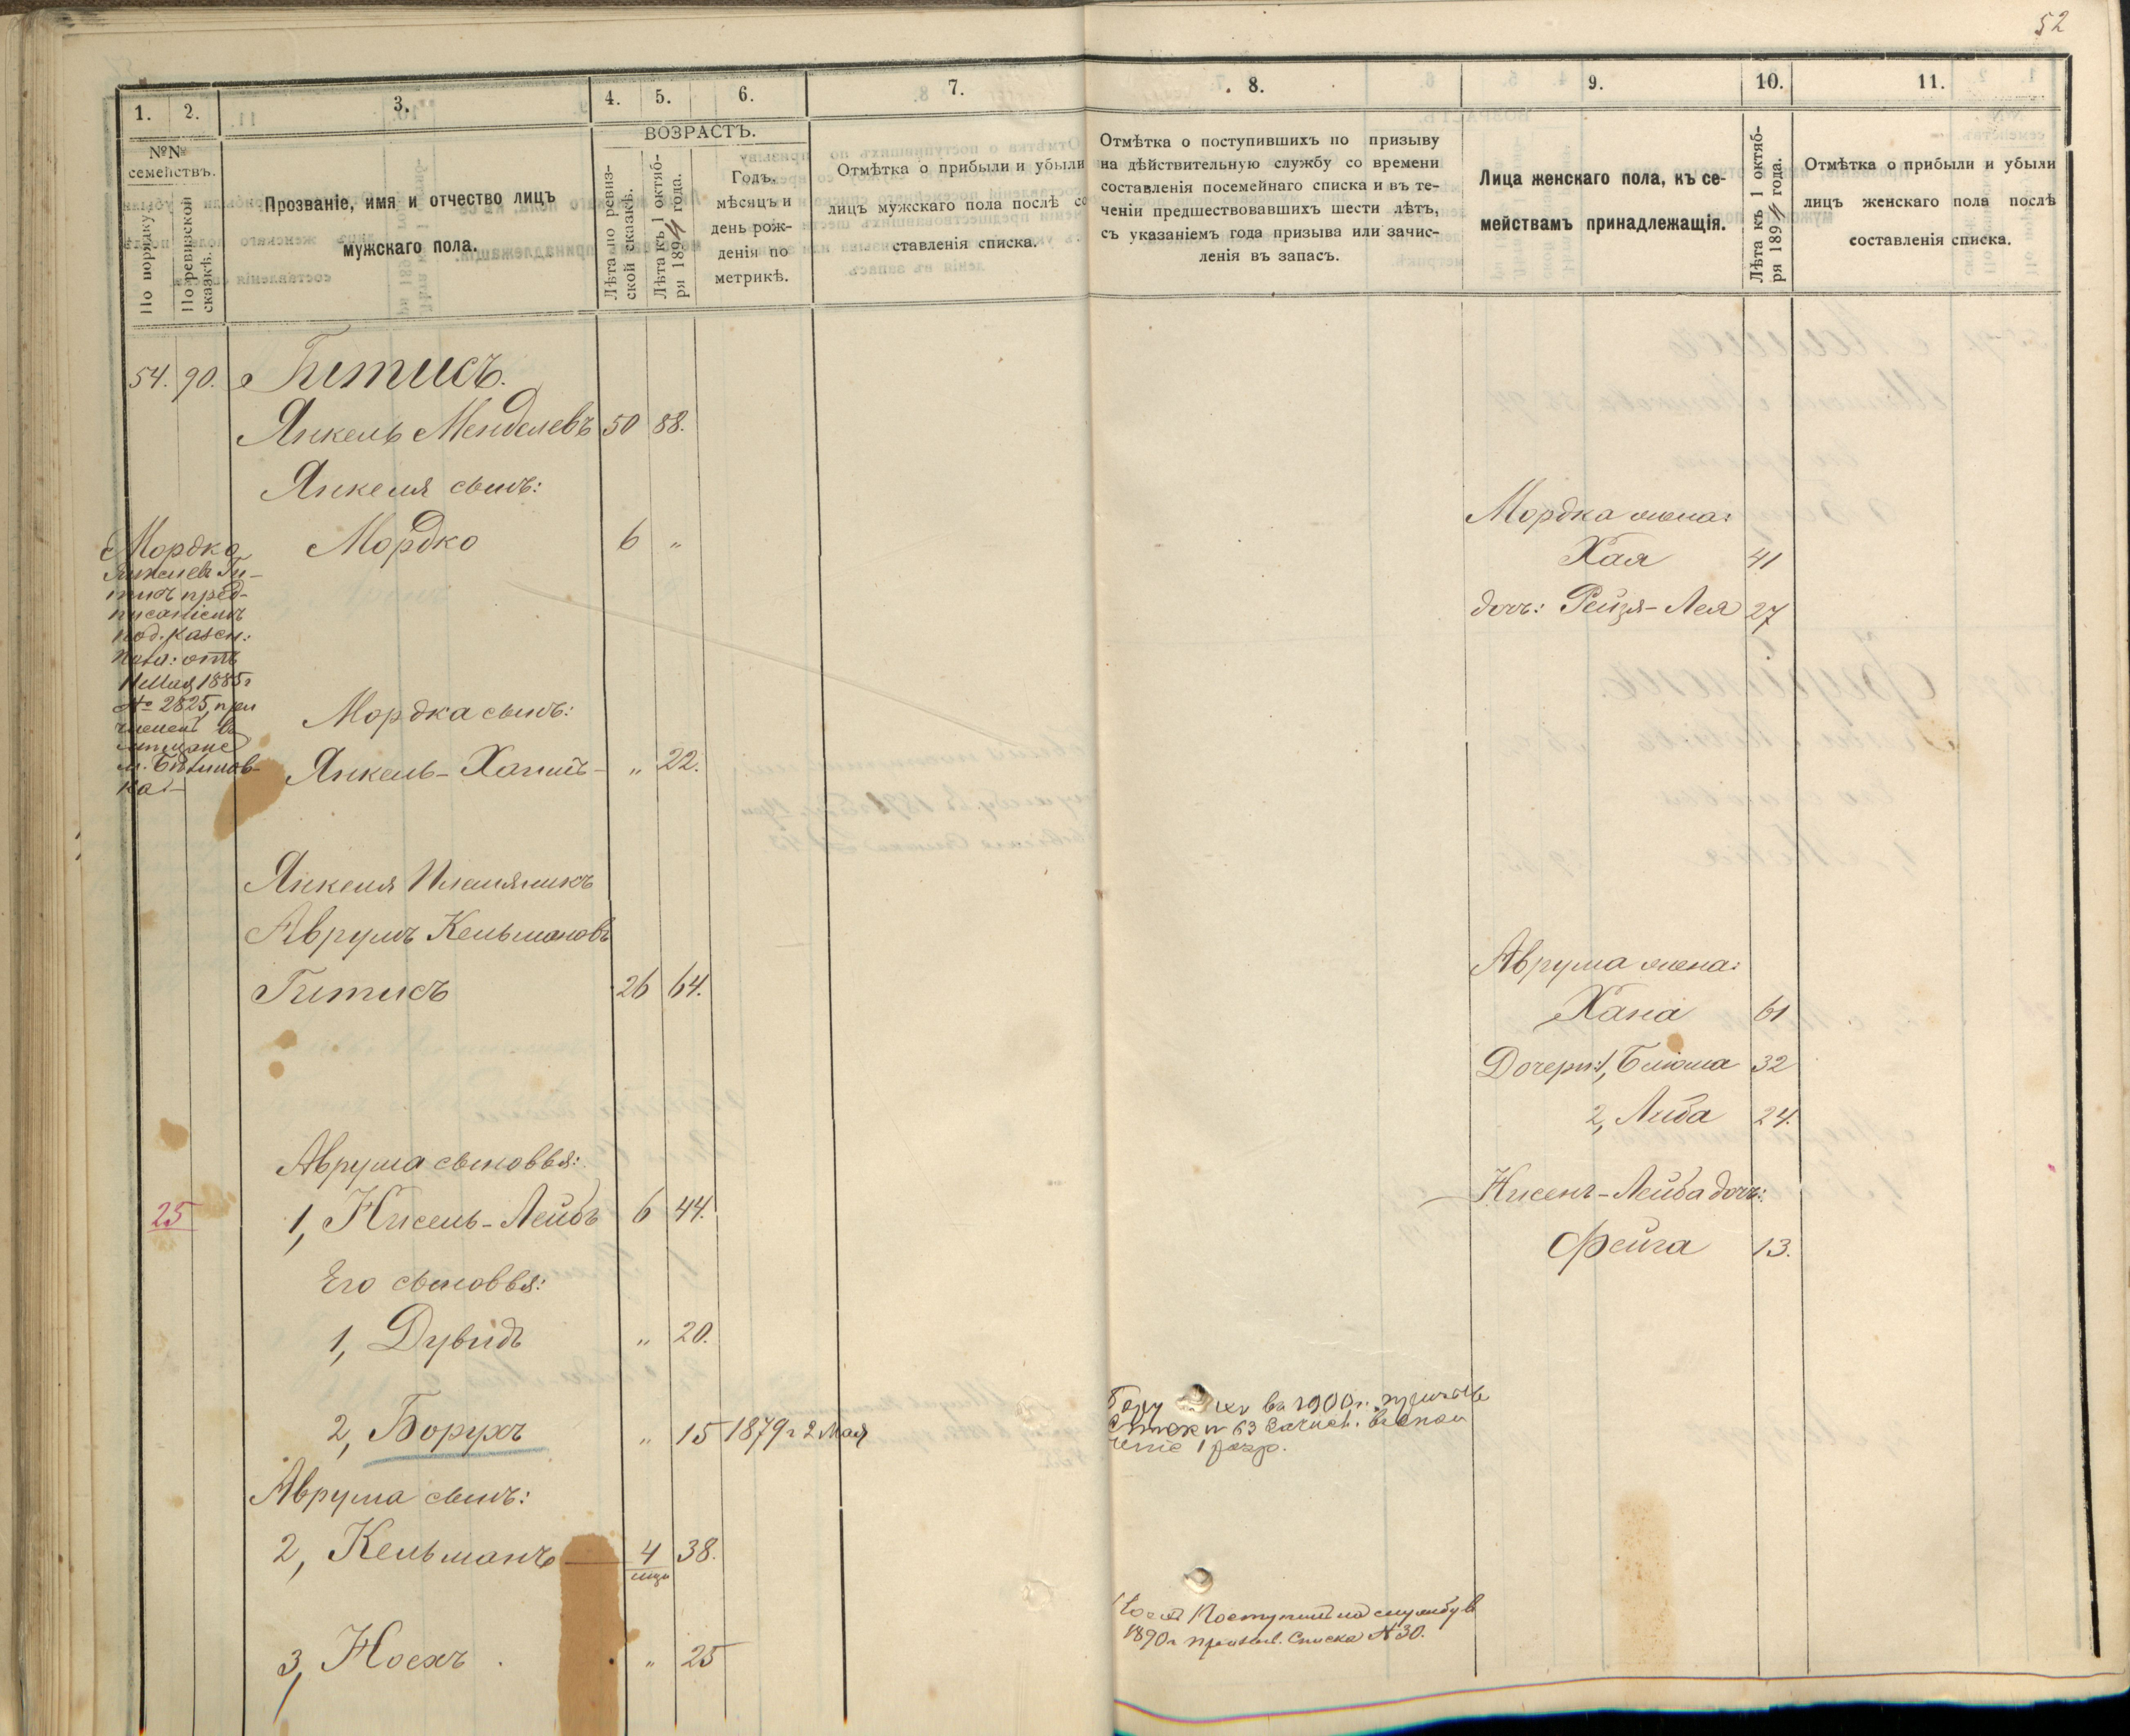 52
1. 2. 3. 4. 5. 6. 7. 8. 9. 10. 11.
№№ семействъ.
По порядку.
По ревизской сказкѣ.
Прозваніе, имя и отчество лицъ
мужскаго пола.
ВОЗРАСТЪ.
Лѣта по ревиз-
ской сказкѣ.
Лѣта къ 1 октяб-
ря 1894 года.
Годъ,
мѣсяцъ и
день рож-
денія по
метрикѣ.
Отмѣтка о прибыли и убыли
лицъ мужскаго пола послѣ со
ставленія списка.
Отмѣтка о поступившихъ по призыву
на дѣйствительную службу со времени
составленія посемейнаго списка и въ те-
ченіи предшествовавшихъ шести лѣтъ,
съ указаніемъ года призыва или зачис-
ленія въ запасъ.
Лица женскаго пола, къ се-
мействамъ принадлежащія.
Лѣта къ 1 октяб-
ря 1894 года.
Отмѣтка о прибыли и убыли
лицъ женскаго пола послѣ
составленія списка.
54. 90. Гитисъ.
Янкель Менделевъ 50 88.
Янкеля сынъ:
Мордко 6 "
Мордко
Янкелев Ги-
тисъ пред-
писаніемъ
под. казен:
пал: отъ
11 Мая 1885 г
№ 2825, при
численъ въ
мѣщане
м.
ка
Мордка сынъ:
Янкель-Хаимъ - " 22.
Янкеля Племянникъ
Аврумъ Кельмановъ
Гитисъ 26 64.
Аврума сыновья:
25 1, Нисель-Лейбъ 6 44.
Его сыновья:
1, Дувидъ " 20.
2, Борухъ " 15 1879 г 2 Мая
Аврума сынъ:
2, Кельманъ 4 мцъ 38.
3, Носхъ. " 25
въ 1900 г.
63 Зачисл. въ опол
ченіе 1 разр.
Поступилъ на службу въ
1890 г призыв. Списка № 30.
Мордка жена:
Хая 41
дочь: Рейзя-Лея 27
Аврума жена:
Хана 61
Дочери: 1, Блюма 32
2, Либа 24.
Нисенъ-Лейба дочь:
Фейга 13.